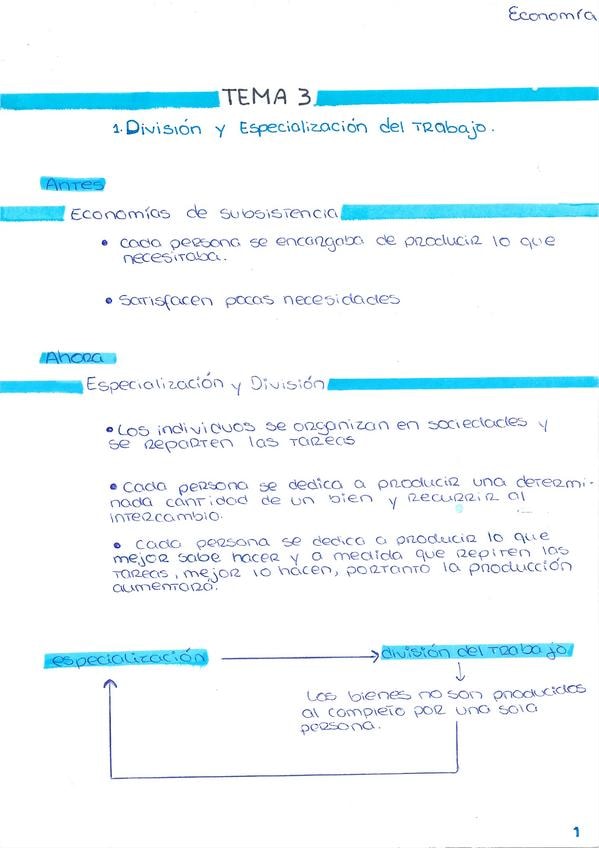 Economía
TEMA 3
1. División y Especialización del Trabajo.
Antes
Economías de subsistencia
• cada persona se encargaba de producir lo que
necesitaba.
• Satisfacen pocas necesidades
Ahora
Especialización y División
• Los individuos se organizan en sociedades y
se reparten las tareas
• Cada persona se dedica a producir una determi-
nada cantidad de un bien y recurrir al
intercambio.
• Cada persona se dedica a producir lo que
mejor sabe hacer y a medida que repiten las
tareas, mejor lo hacen, portanto la producción
aumentará.
especialización
división del trabajo
Los bienes no son producidos
al completo por una sola
persona.
1